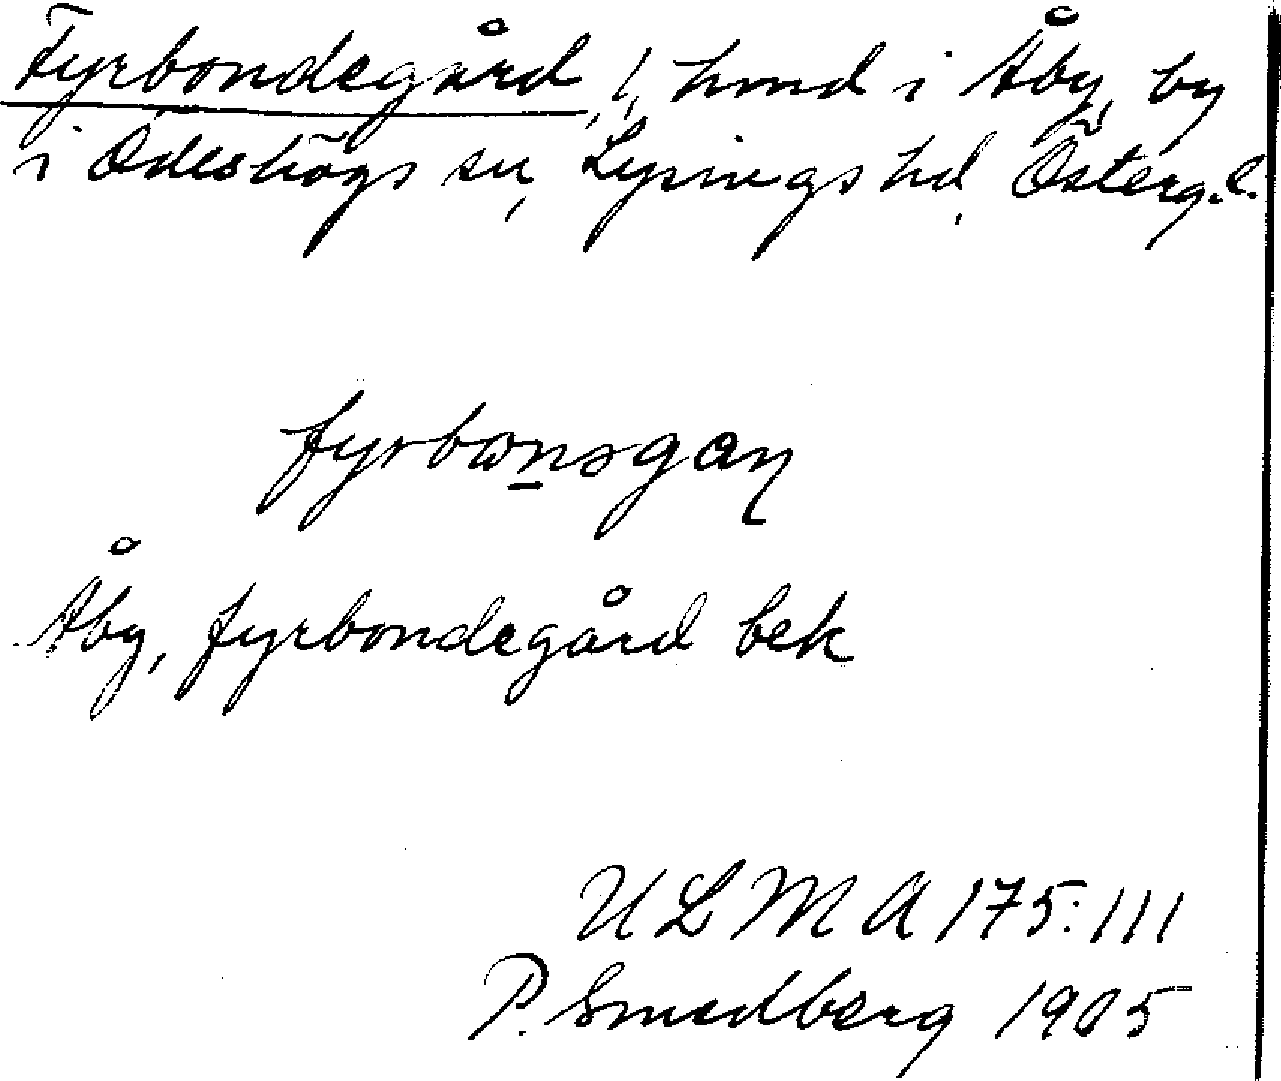 Fyrbondegård, 1 hmd i Åby, by
i Ödeshögs sn, Lysings hd, Österg.l.
fyrbωnsgaɳ
Åby, fyrbondegård bek
ULMA 175:111
P. Smedberg 1905